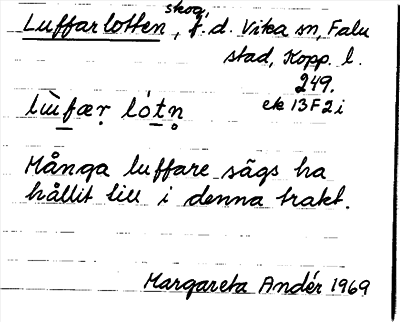 Luffarlotten, skog, f.d. Vika sn, Falu
stad, Kopp. l.
249.
lùfær lótn ek 13F2i
Många luffare sägs ha
hållit till i denna trakt.
Margareta Andér 1969